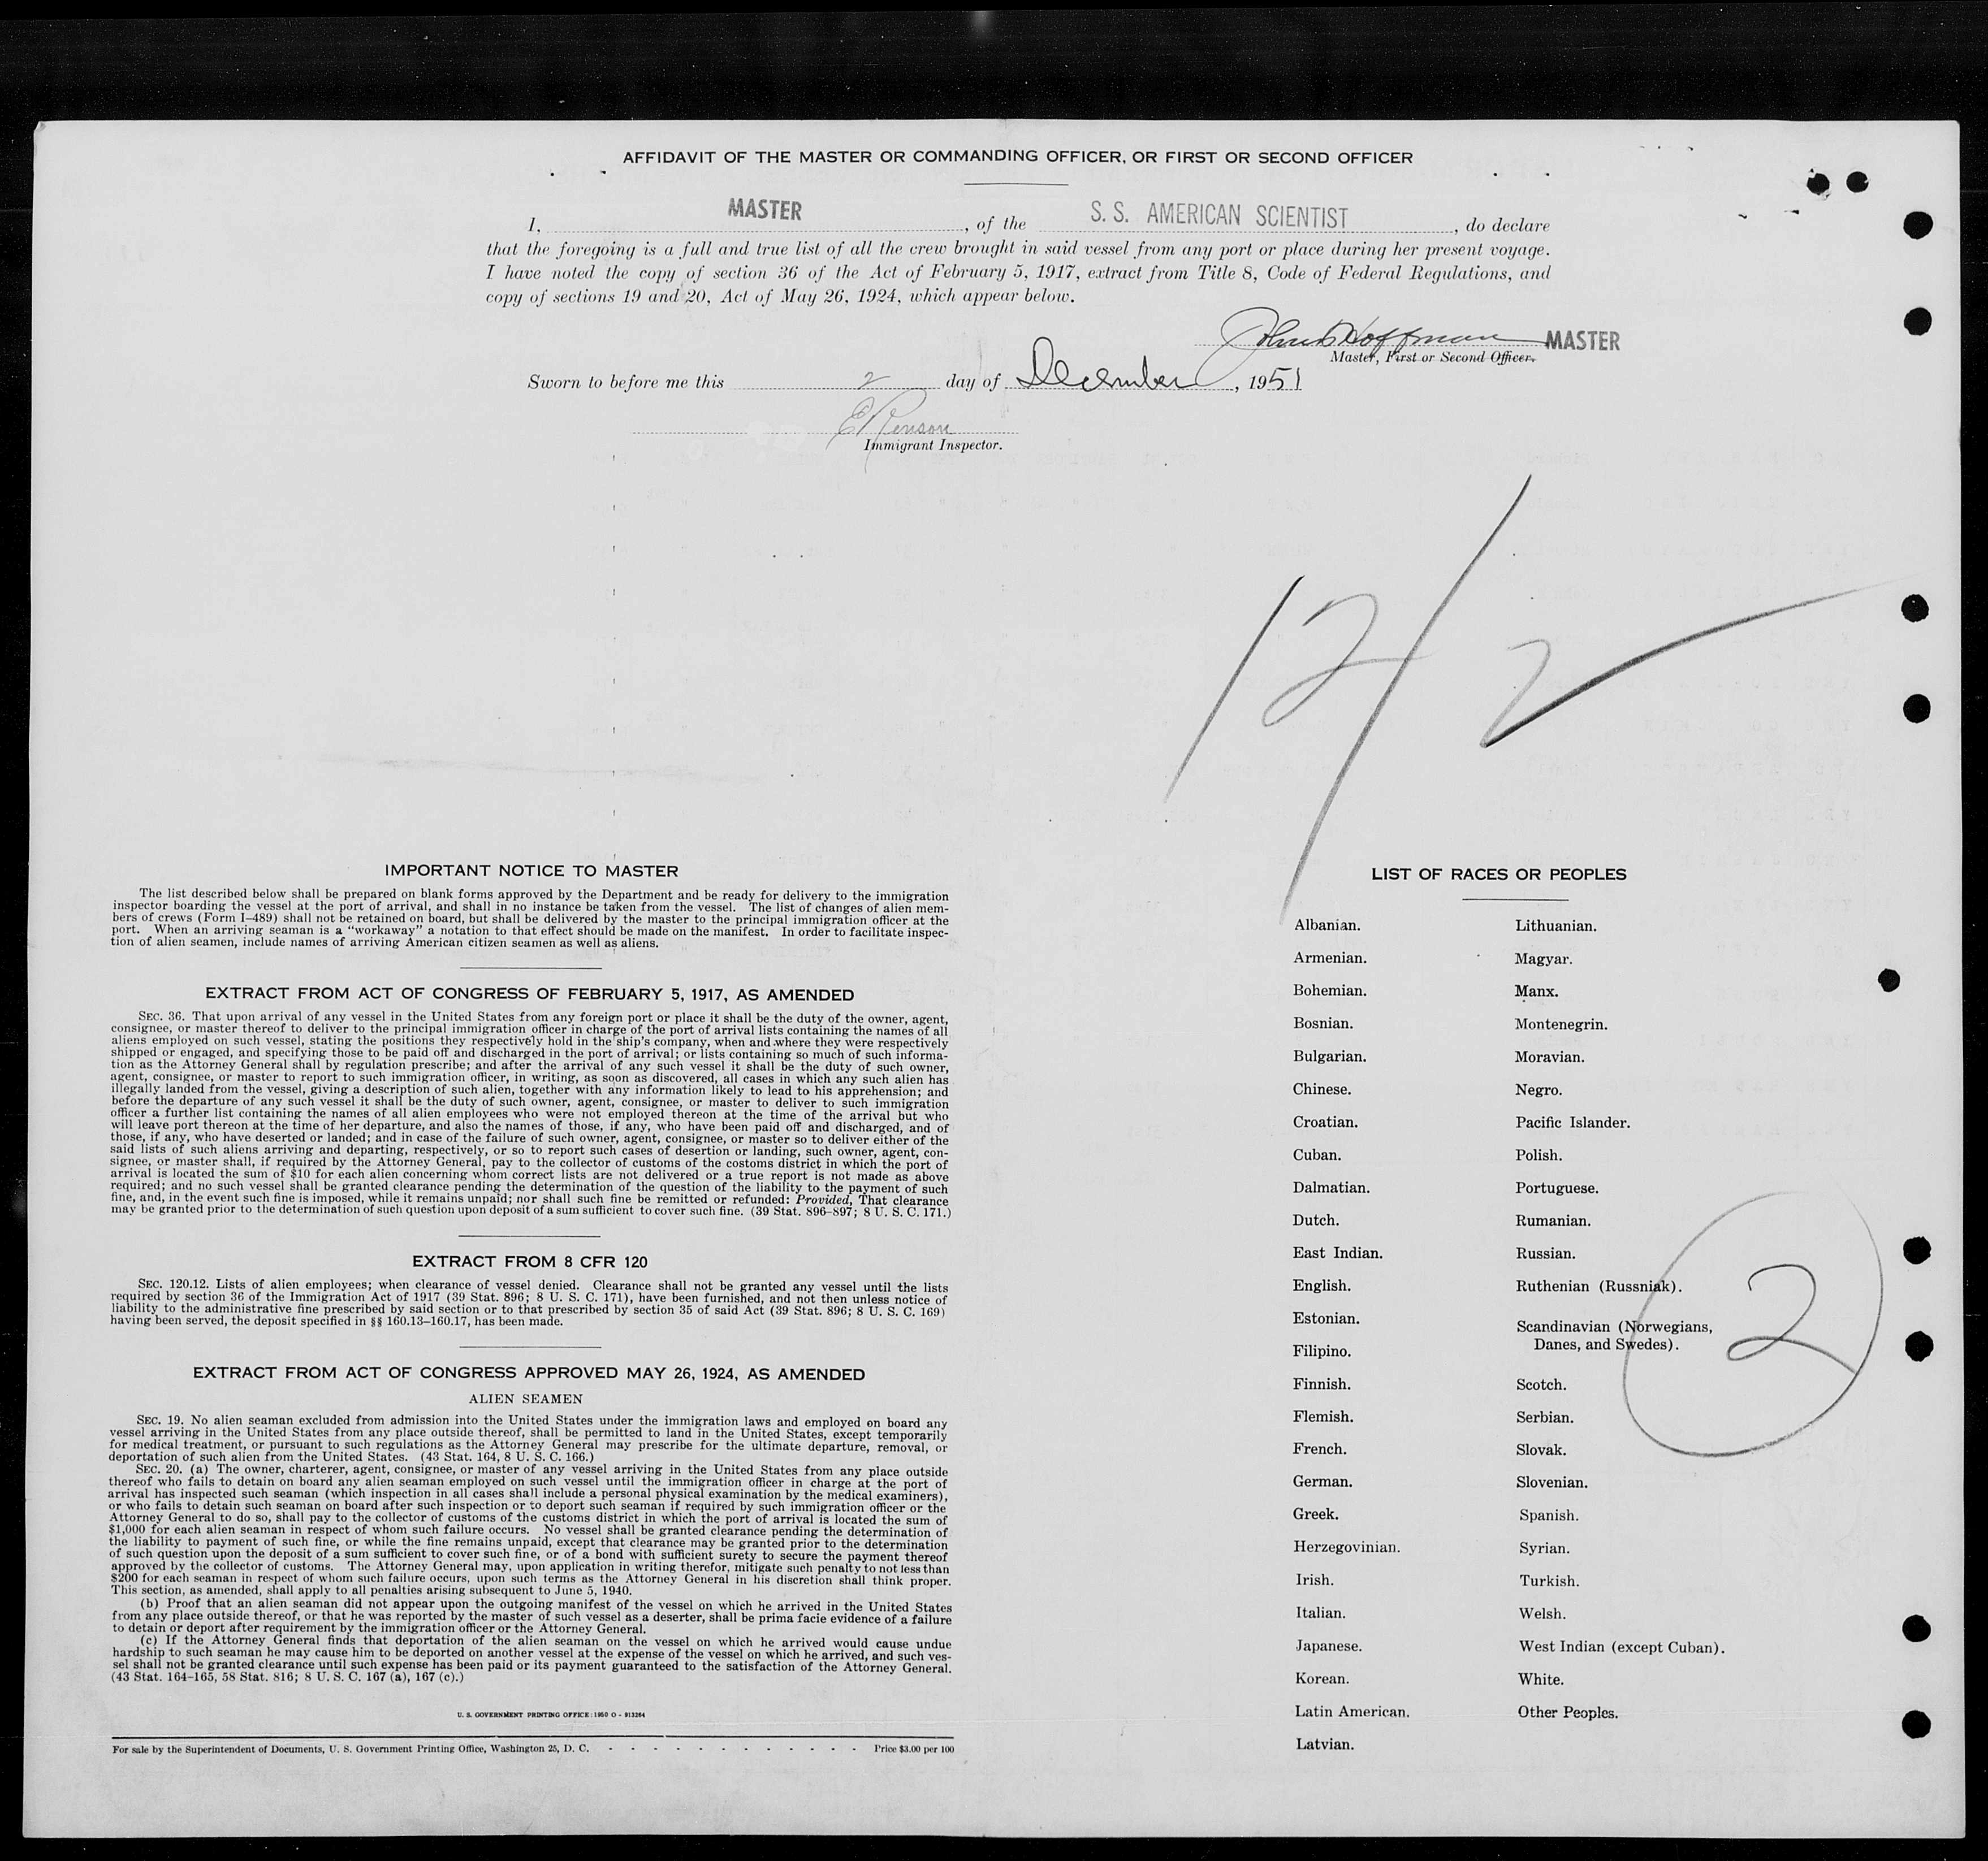 AFFIDAVIT OF THE MASTER OR COMMANDING OFFICER, OR FIRST OR SECOND OFFICER
I, MASTER, of the S. S. AMERICAN SCIENTIST, do declare
that the foregoing is a full and true list of all the crew brought in said vessel from any port or place during her present voyage.
I have noted the copy of section 36 of the Act of February 5, 1917, extract from Title 8, Code of Federal Regulations, and
copy of sections 19 and 20, Act of May 26, 1924, which appear below.
Hoffman MASTER
Master, First or Second Officer.
Sworn to before me this 2 day of December, 1951
Immigrant Inspector.
12/2
IMPORTANT NOTICE TO MASTER
The list described below shall be prepared on blank forms approved by the Department and be ready for delivery to the immigration
inspector boarding the vessel at the port of arrival, and shall in no instance be taken from the vessel. The list of changes of alien mem-
bers of crews (Form I–489) shall not be retained on board, but shall be delivered by the master to the principal immigration officer at the
port. When an arriving seaman is a "workaway" a notation to that effect should be made on the manifest. In order to facilitate inspec-
tion of alien seamen, include names of arriving American citizen seamen as well as aliens.
EXTRACT FROM ACT OF CONGRESS OF FEBRUARY 5, 1917, AS AMENDED
SEC. 36. That upon arrival of any vessel in the United States from any foreign port or place it shall be the duty of the owner, agent,
consignee, or master thereof to deliver to the principal immigration officer in charge of the port of arrival lists containing the names of all
aliens employed on such vessel, stating the positions they respectively hold in the ship's company, when and where they were respectively
shipped or engaged, and specifying those to be paid off and discharged in the port of arrival; or lists containing so much of such informa-
tion as the Attorney General shall by regulation prescribe; and after the arrival of any such vessel it shall be the duty of such owner,
agent, consignee, or master to report to such immigration officer, in writing, as soon as discovered, all cases in which any such alien has
illegally landed from the vessel, giving a description of such alien, together with any information likely to lead to his apprehension; and
before the departure of any such vessel it shall be the duty of such owner, agent, consignee, or master to deliver to such immigration
officer a further list containing the names of all alien employees who were not employed thereon at the time of the arrival but who
will leave port thereon at the time of her departure, and also the names of those, if any, who have been paid off and discharged, and of
those, if any, who have deserted or landed; and in case of the failure of such owner, agent, consignee, or master so to deliver either of the
said lists of such aliens arriving and departing, respectively, or so to report such cases of desertion or landing, such owner, agent, con-
signee, or master shall, if required by the Attorney General, pay to the collector of customs of the costoms district in which the port of
arrival is located the sum of $10 for each alien concerning whom correct lists are not delivered or a true report is not made as above
required; and no such vessel shall be granted clearance pending the determination of the question of the liability to the payment of such
fine, and, in the event such fine is imposed, while it remains unpaid; nor shall such fine be remitted or refunded: Provided, That clearance
may be granted prior to the determination of such question upon deposit of a sum sufficient to cover such fine. (39 Stat. 896–897; 8 U. S. C. 171.)
EXTRACT FROM 8 CFR 120
SEC. 120.12. Lists of alien employees; when clearance of vessel denied. Clearance shall not be granted any vessel until the lists
required by section 36 of the Immigration Act of 1917 (39 Stat. 896; 8 U. S. C. 171), have been furnished, and not then unless notice of
liability to the administrative fine prescribed by said section or to that prescribed by section 35 of said Act (39 Stat. 896; 8 U. S. C. 169)
having been served, the deposit specified in §§ 160.13–160.17, has been made.
EXTRACT FROM ACT OF CONGRESS APPROVED MAY 26, 1924, AS AMENDED
ALIEN SEAMEN
SEC. 19. No alien seaman excluded from admission into the United States under the immigration laws and employed on board any
vessel arriving in the United States from any place outside thereof, shall be permitted to land in the United States, except temporarily
for medical treatment, or pursuant to such regulations as the Attorney General may prescribe for the ultimate departure, removal, or
deportation of such alien from the United States. (43 Stat. 164, 8 U. S. C. 166.)
SEC. 20. (a) The owner, charterer, agent, consignee, or master of any vessel arriving in the United States from any place outside
thereof who fails to detain on board any alien seaman employed on such vessel until the immigration officer in charge at the port of
arrival has inspected such seaman (which inspection in all cases shall include a personal physical examination by the medical examiners),
or who fails to detain such seaman on board after such inspection or to deport such seaman if required by such immigration officer or the
Attorney General to do so, shall pay to the collector of customs of the customs district in which the port of arrival is located the sum of
$1,000 for each alien seaman in respect of whom such failure occurs. No vessel shall be granted clearance pending the determination of
the liability to payment of such fine, or while the fine remains unpaid, except that clearance may be granted prior to the determination
of such question upon the deposit of a sum sufficient to cover such fine, or of a bond with sufficient surety to secure the payment thereof
approved by the collector of customs. The Attorney General may, upon application in writing therefor, mitigate such penalty to not less than
$200 for each seaman in respect of whom such failure occurs, upon such terms as the Attorney General in his discretion shall think proper.
This section, as amended, shall apply to all penalties arising subsequent to June 5, 1940.
(b) Proof that an alien seaman did not appear upon the outgoing manifest of the vessel on which he arrived in the United States
from any place outside thereof, or that he was reported by the master of such vessel as a deserter, shall be prima facie evidence of a failure
to detain or deport after requirement by the immigration officer or the Attorney General.
(c) If the Attorney General finds that deportation of the alien seaman on the vessel on which he arrived would cause undue
hardship to such seaman he may cause him to be deported on another vessel at the expense of the vessel on which he arrived, and such ves-
sel shall not be granted clearance until such expense has been paid or its payment guaranteed to the satisfaction of the Attorney General.
(43 Stat. 164–165, 58 Stat. 816; 8 U. S. C. 167 (a), 167 (c).)
U. S. GOVERNMENT PRINTING OFFICE : 1950 O - 913264
For sale by the Superintendent of Documents, U. S. Government Printing Office, Washington 25, D. C. - - - - - - - - - - - - Price $3.00 per 100
LIST OF RACES OR PEOPLES
Albanian.
Armenian.
Bohemian.
Bosnian.
Bulgarian.
Chinese.
Croatian.
Cuban.
Dalmatian.
Dutch.
East Indian.
English.
Estonian.
Filipino.
Finnish.
Flemish.
French.
German.
Greek.
Herzegovinian.
Irish.
Italian.
Japanese.
Korean.
Latin American.
Latvian.
Lithuanian.
Magyar.
Manx.
Montenegrin.
Moravian.
Negro.
Pacific Islander.
Polish.
Portuguese.
Rumanian.
Russian.
Ruthenian (Russniak).
Scandinavian (Norwegians,
Danes, and Swedes).
Scotch.
Serbian.
Slovak.
Slovenian.
Spanish.
Syrian.
Turkish.
Welsh.
West Indian (except Cuban).
White.
Other Peoples.
2